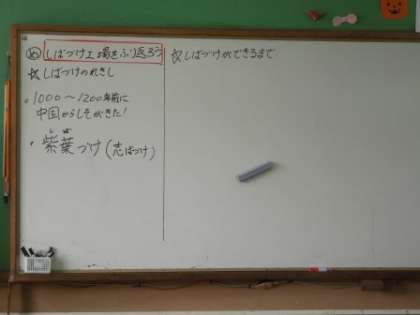 め しばづけ工場をふり返ろう
☆しばづけのれきし
・1000～1200年前に
中国からしそがきた!
・紫葉づけ(志ばづけ)
しば
☆しばづけができるまで